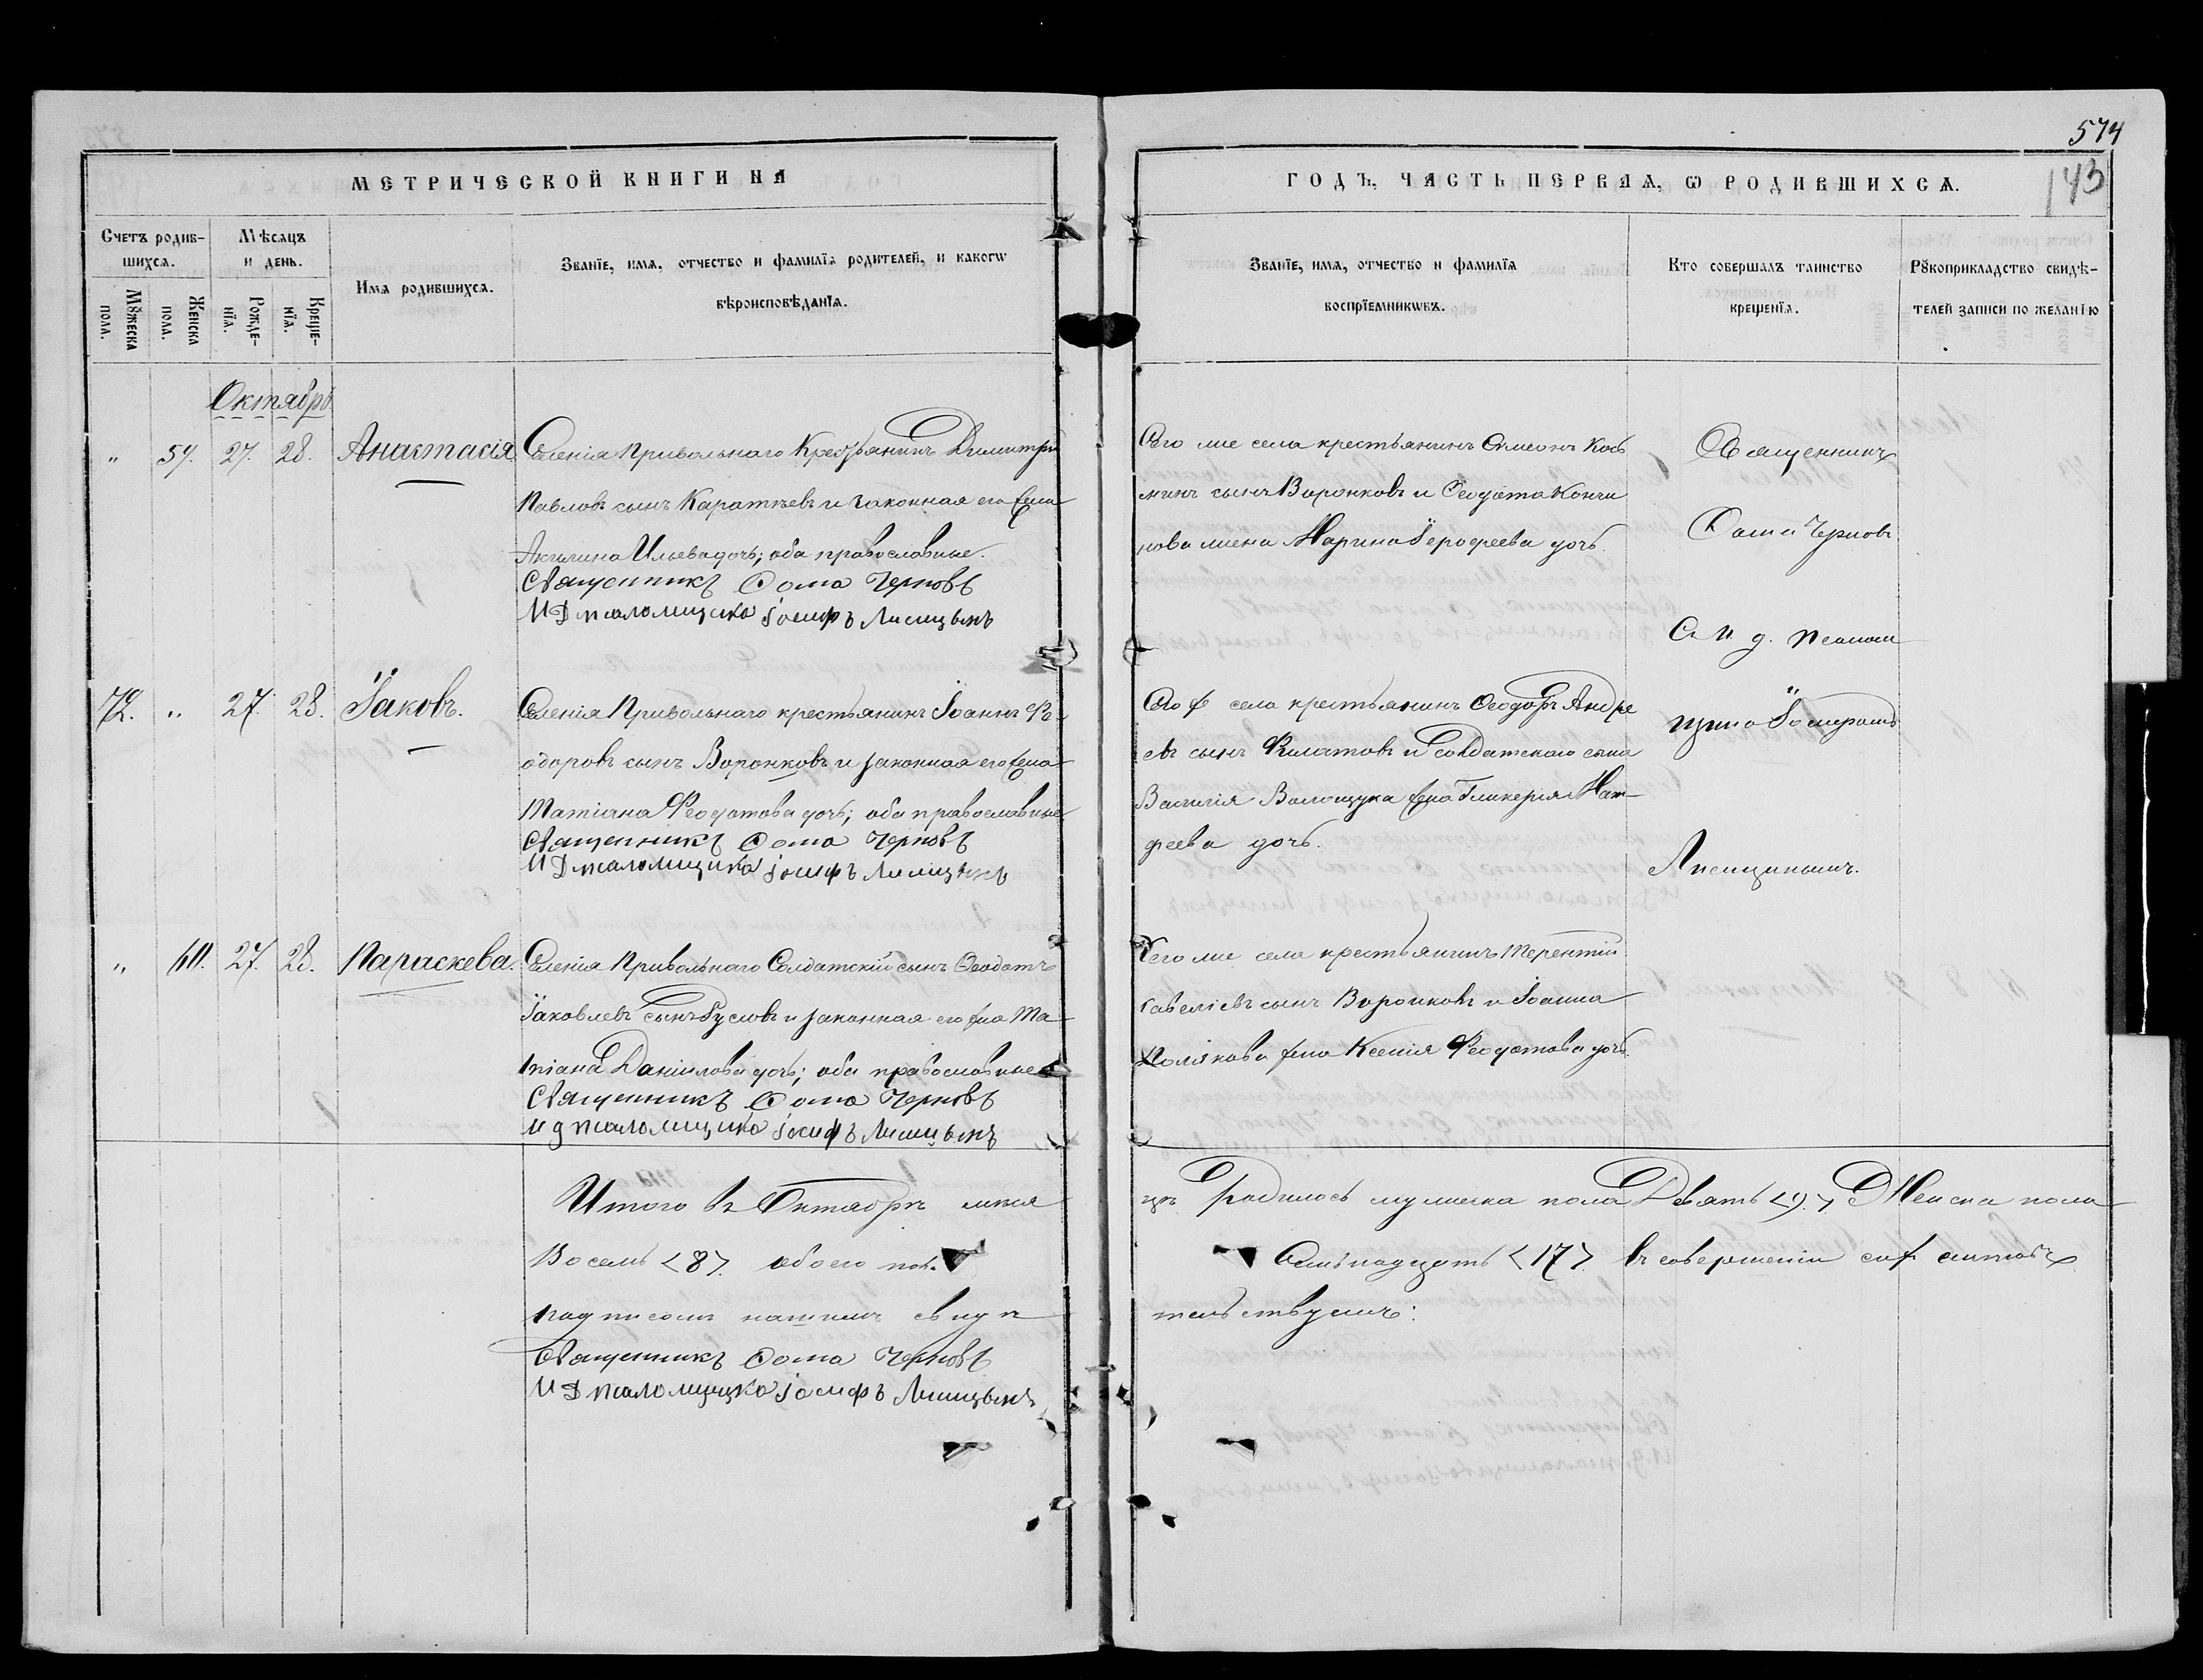 574
143
МЕТРИЧЕСКОЙ КНИГИ НА
ГОДЪ, ЧАСТЬ ПЕРВАЯ, Ѡ РОДИВШИХСѦ.
Счетъ родив-
шихсѧ.
Мѣсяцъ
и день.
Мꙋжеска
пола.
Женска
пола.
Рожде-
нїѧ.
Креще-
нїѧ.
Имѧ родившихсѧ.
Званїе, имѧ, отчество и фамилїѧ родителей, и какогѡ
вѣроисповѣданїѧ.
Званїе, имѧ, отчество и фамилїѧ
воспрїемникѡвъ.
Кто совершалъ таинство
крещенїѧ.
Рꙋкоприкладство свидѣ-
телей записи по желанїю
Октябрь
„ 59. 27. 28. Анастасія
Селенія Привольнаго Крестьянинъ Димитрій
Павловъ сынъ Каратѣевъ и законная его жена
Акилина Ильева дочь; оба православные.
Священникъ Ѳома Черновъ
И Д псаломщика Іосифъ Лисицынъ
Сего же села крестьянинъ Симеонъ Кось
минъ сынъ Воронковъ и Ѳеодота
нова жена Марина Іерофеева дочь.
Священникъ
Ѳома Черновъ
С И. д. псалом
щика Іосифомъ
Лисицинымъ.
72. „ 27. 28. Іаковъ.
Селенія Привольнаго крестьянинъ Іоаннъ Ѳе
одоровъ сынъ Воронковъ и законная его жена
Татіана Ѳеодотова дочь; оба православные
Священникъ Ѳома Черновъ
И Д псаломщика Іосифъ Лисицынъ
Сего ж села крестьянинъ Ѳеодоръ Андре
евъ сынъ Филатовъ и Солдатскаго сына
Василія жена Гликерія Мат-
феева дочь.
„ 60. 27. 28. Параскева.
Селенія Привольнаго Солдатскій сынъ Ѳеодотъ
Іаковлевъ сынъ Гусловъ и законная его жена Та
тіана Даніилова дочь; оба православные
Священникъ Ѳома Черновъ
И д псаломщика Іосифъ Лисицынъ
Сего же села крестьянинъ Терентій
Савеліевъ сынъ Воронковъ и Іоанна
Полякова жена Ксенія Ѳеодотова дочь.
Итого въ Октябрѣ мѣся
цѣ Родилось мужеска пола Девять <9.> Женска пола
Восемь <8>. обоего пол.
Семьнадцать <17> въ совершеніи сих актовъ
подписомъ нашимъ свидѣ
тельствуемъ:
Священникъ Ѳома Черновъ
И Д псаломщика Іосифъ Лисицынъ